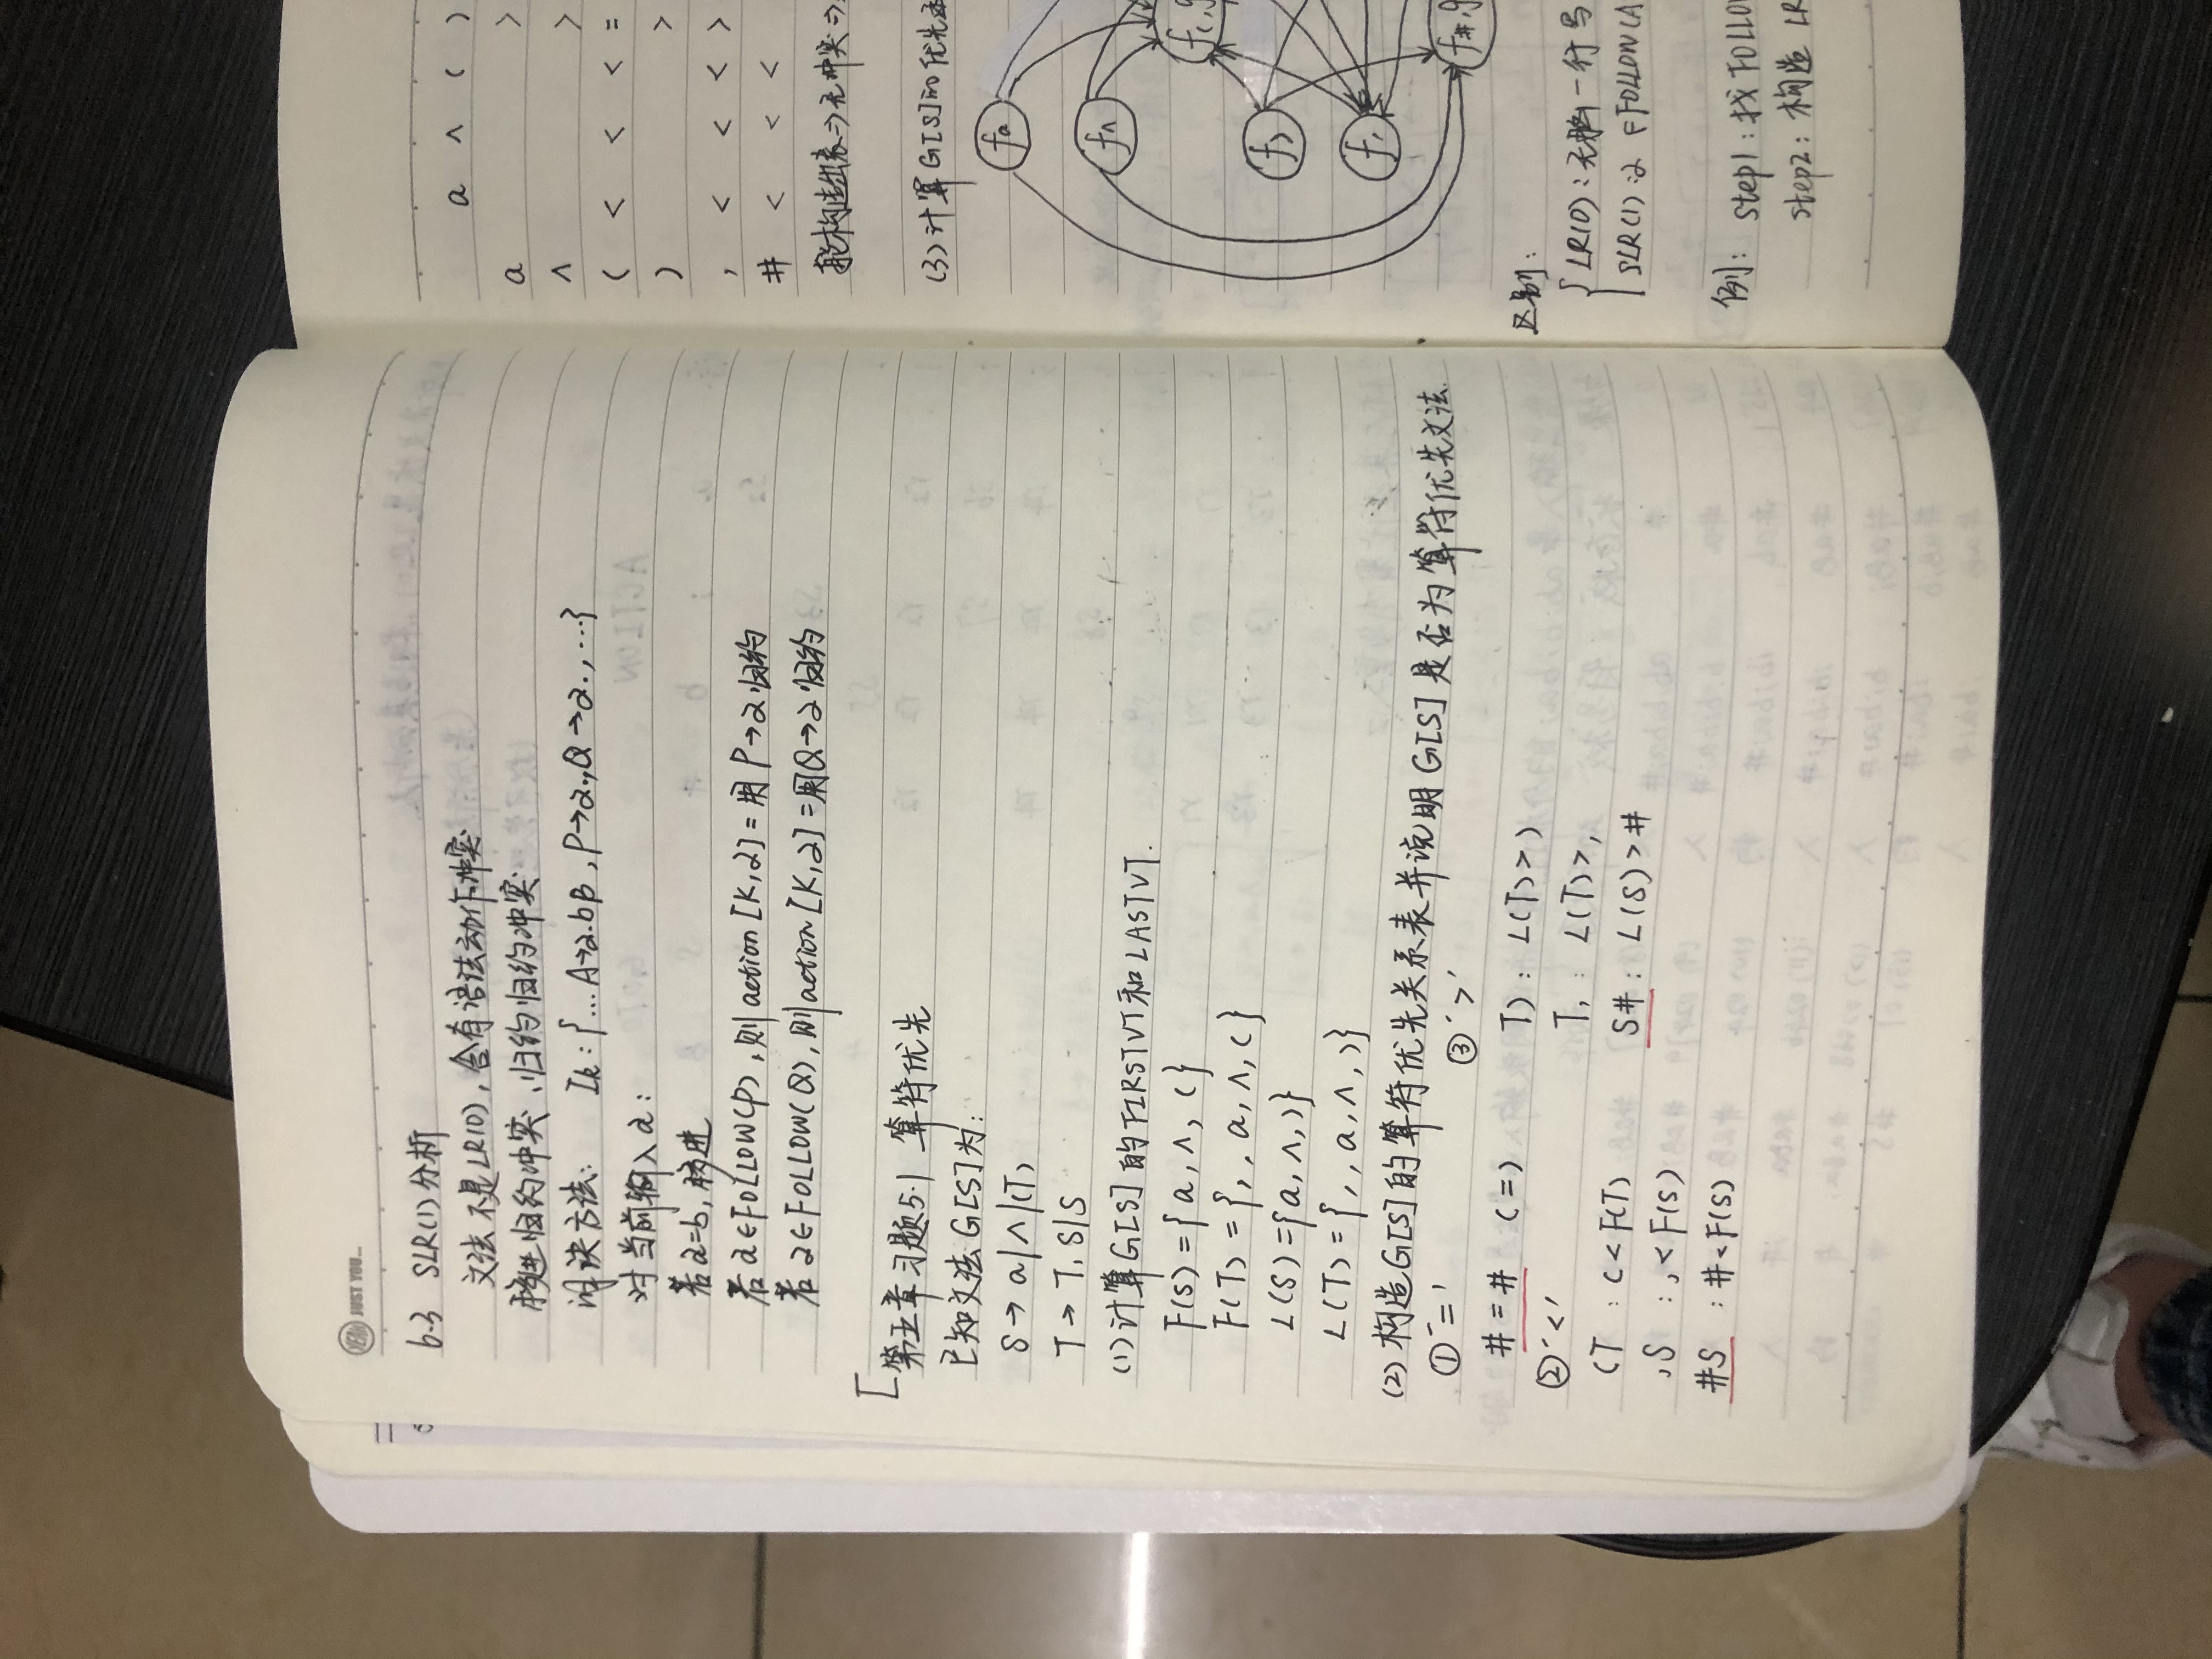 YEAH JUST YOU...
6.3 SLR(1)分析
文法不是LR(0),含有语法动作冲突
移进归约冲突、归约归约冲突
解决方法: Ik:{...A→α.bβ,P→α.,Q→α.,...}
对当前输入a:
若a=b,移进
若a∈FOLLOW(P),则action[K,a]=用P→α归约
若a∈FOLLOW(Q),则action[K,a]=用Q→α归约
[第五章习题5.1 算符优先
已知文法G[S]为:
S→a|∧|(T)
T→T,S|S
(1)计算G[S]的FIRSTVT和LASTVT.
F(S)={a,∧,(}
F(T)={,,a,∧,(}
L(S)={a,∧,)}
L(T)={,,a,∧,)}
(2)构造G[S]的算符优先关系表并说明G[S]是否为算符优先文法.
①'='
#=# (=)
②'<'
(T : (<F(T)
,S : ,<F(S)
#S : #<F(S)
③'>'
T) : L(T)>)
T, : L(T)>,
S# : L(S)>#
a ∧ ( )
a >
∧ >
( < < < =
) >
, < < < >
# < < <
能构造出表⇒无冲突⇒
(3)计算G[S]的优先
fa
f∧
f(,g
f)
f,
f#,g
区别:
LR(0):无脑一行写
SLR(1):a∈FOLLOW(A
例: step1:找FOLLO
step2:构造LR